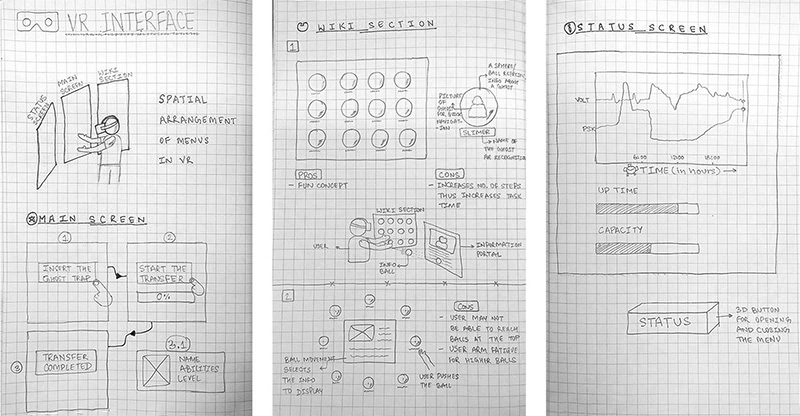 VR INTERFACE
STATUS
SCREEN
MAIN
SCREEN
WIKI
SECTION
SPATIAL
ARRANGEMENT
OF MENUS
IN VR
MAIN SCREEN
1
2
INSERT THE
GHOST TRAP
START THE
TRANSFER
0%
3
TRANSFER
COMPLETED
3.1
NAME
ABILITIES
LEVEL
WIKI SECTION
1
A SPHERE/
BALL
INFO ABOUT
A GHOST
PICTURE
OF
GHOST
FOR
SLIMER
NAME OF
THE GHOST
FOR RECOGNITION
PROS
- FUN CONCEPT
CONS
- INCREASES NO. OF STEPS
THUS INCREASES TASK
TIME
WIKI SECTION
USER
INFO
BALL
INFORMATION
PORTAL
2
CONS
- USER MAY NOT
BE ABLE TO REACH
BALLS AT THE TOP
- USER ARM FATIGUE
FOR HIGHER BALLS
BALL MOVEMENT
SELECTS
THE INFO
TO DISPLAY
USER PUSHES
THE BALL
STATUS SCREEN
VOLT
6:00
12:00
18:00
TIME (in hours)
UP TIME
CAPACITY
STATUS
3D BUTTON
FOR OPENING
AND CLOSING
THE MENU